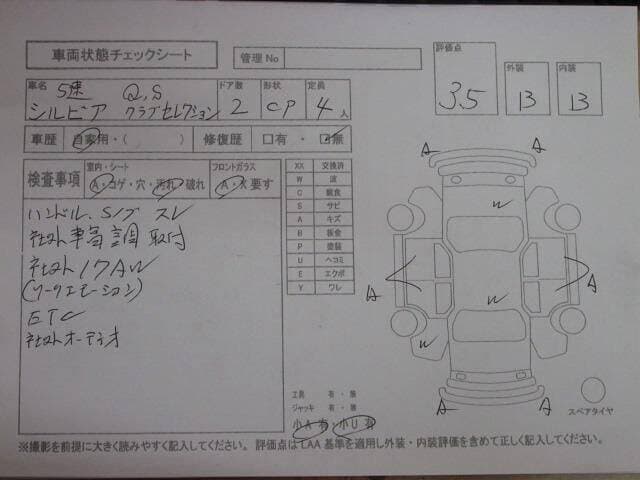 車両状態チェックシート
管理No
評価点 3.5
外装 B
内装 B
車名 5速 Q,S
シルビア クラブセレクション
ドア数 2
形状 CP
定員 4人
車歴 自家用・( )
修復歴 □有・□無
検査事項
室内・シート
A・コゲ・穴・汚れ・破れ
フロントガラス
A・X 要す
ハンドル、S/ブ スレ
社外車高調 取付
社外17AW
(ワークエモーション)
ETC
社外オーディオ
XX 交換済
W 波
C 腐食
S サビ
A キズ
B 板金
P 塗装
U ヘコミ
E エクボ
Y ワレ
A A
W
A A
W
W
A A
工具 有・無
ジャッキ 有・無
小A有・小U有
スペアタイヤ
※撮影を前提に大きく読みやすく記入してください。評価点はLAA基準を適用し外装・内装評価を含めて正しく記入してください。